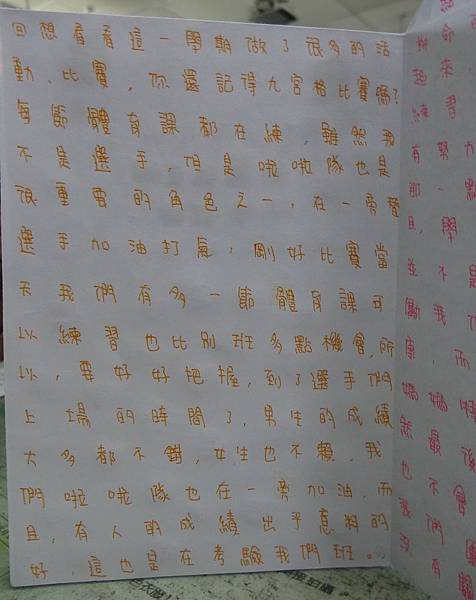 回想看看這一學期做了很多的活
動、比賽，你還記得九宮格比賽嗎？
每節體育課都在練，雖然我
不是選手，但是啦啦隊也是
很重要的角色之一，在一旁替
選手加油打氣，剛好比賽當
天我們有多一節體育課可
以練習也比別班多點機會，所
以，要好好把握，到了選手們
上場的時間了，男生的成績
大多都不錯，女生也不賴，我
們啦啦隊也在一旁加油，而
且，有人的成績出乎意料的
好，這也是在考驗我們班。
命
起來
練習
有努力
那一點
且，學
並不是
勵我們
康，而
媽媽
然最後
也不會
我們
沒有